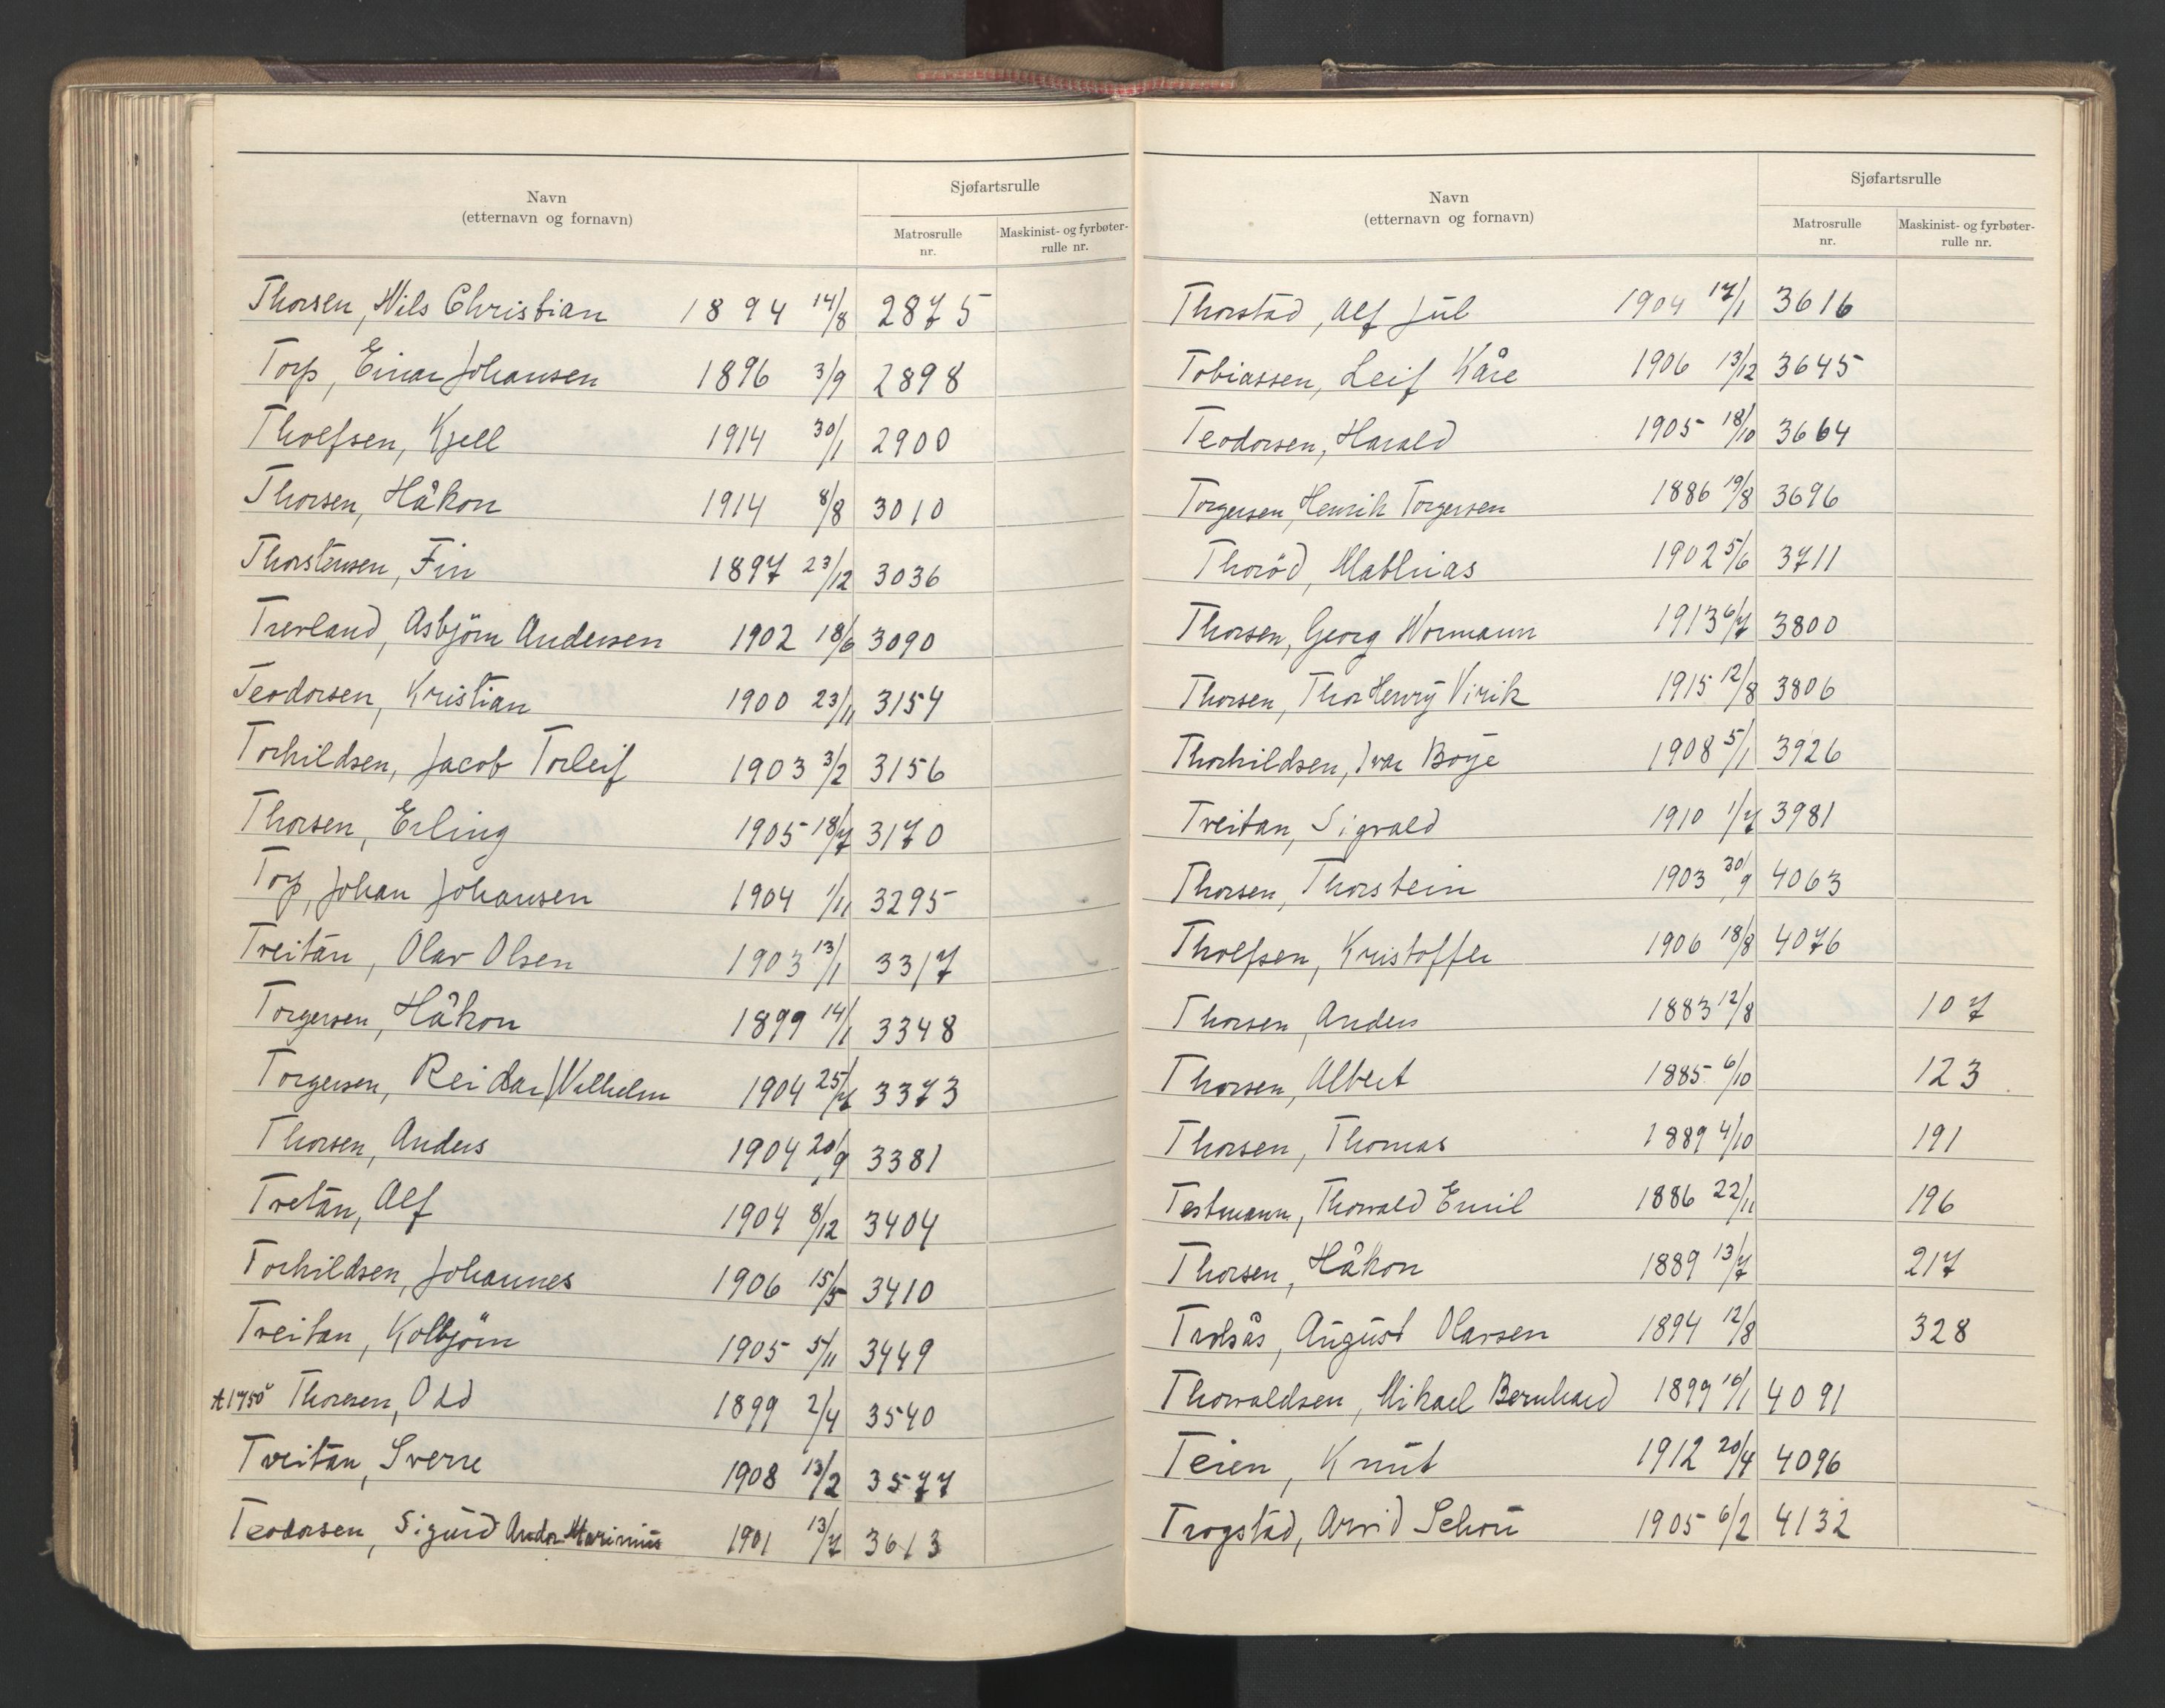 Navn
(etternavn og fornavn)
Sjøfartsrulle
Matrosrulle nr.
Maskinist- og fyrbøter-rulle nr.
Thorsen, Nils Christian 1894 14/8 2875
Torp, Einar Johansen 1896 3/9 2898
Tholfsen, Kjell 1914 30/1 2900
Thorsen, Håkon 1914 8/8 3010
Thorstensen, Fin 1897 23/12 3036
Treland, Asbjörn Andersen 1902 18/6 3090
Teodorsen, Kristian 1900 23/11 3154
Torkildsen, Jacob Torleif 1903 3/2 3156
Thorsen, Erling 1905 18/7 3170
Torp, Johan Johansen 1904 1/11 3295
Treitan, Olav Olsen 1903 13/1 3317
Torgersen, Håkon 1899 14/1 3348
Torgersen, Reidar Vilhelm 1904 25/7 3373
Thorsen, Anders 1904 20/9 3381
Tretan, Alf 1904 8/12 3404
Torkildsen, Johannes 1906 15/5 3410
Treitan, Kolbjörn 1905 5/11 3449
A1750 Thoresen, Odd 1899 2/4 3540
Treitan, Sverre 1908 13/2 3577
Teodorsen, Sigurd Andor Marinius 1901 13/7 3613
Navn
(etternavn og fornavn)
Sjøfartsrulle
Matrosrulle nr.
Maskinist- og fyrbøter-rulle nr.
Thorstad, Alf Jul 1904 17/1 3616
Tobiassen, Leif Kåre 1906 13/12 3645
Teodorsen, Harald 1905 18/10 3664
Torgersen, Henrik Torgersen 1886 19/8 3696
Thorød, Mathias 1902 5/6 3711
Thorsen, Georg Wormann 1913 6/7 3800
Thorsen, Thor Henry Virik 1915 12/8 3806
Thorkildsen, Ivar Boye 1908 5/1 3926
Treitan, Sigvald 1910 1/7 3981
Thorsen, Thorstein 1903 30/9 4063
Tholfsen, Kristoffer 1906 18/8 4076
Thorsen, Anders 1883 12/8 107
Thorsen, Albert 1885 6/10 123
Thorsen, Thomas 1889 4/10 191
Testmann, Thorvald Emil 1886 22/11 196
Thorsen, Håkon 1889 13/7 217
Trolsås, August Olavsen 1894 12/8 328
Thorvaldsen, Mikael Bernhard 1899 16/1 4091
Teien, Knut 1912 20/4 4096
Trogstad, Arvid Schou 1905 6/2 4132